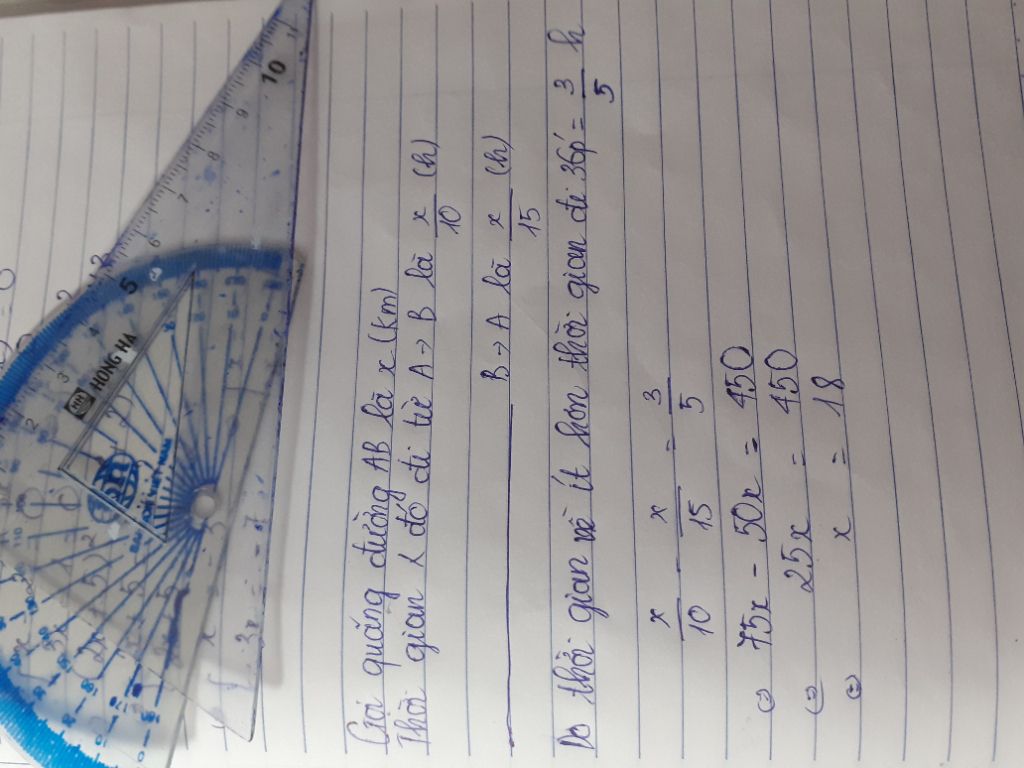 Gọi quãng đường AB là x (km)
Thời gian đó đi từ A → B là x/10 (h)
B → A là x/15 (h)
Do thời gian về ít hơn thời gian đi 36p' = 3/5 h
x/10 - x/15 = 3/5
(=) 75x - 50x = 450
(=) 25x = 450
(=) x = 18
HỒNG HÀ
1 2 3 4 5 6 7 8 9 10